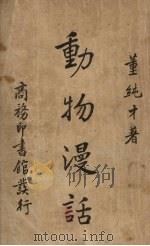 董純才著
動物漫話
商務印書館發行